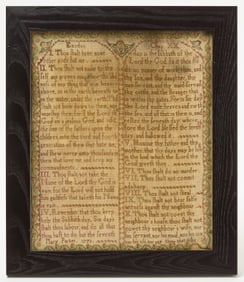 Exodus
I. Thou shalt have none
other gods but me
II. Thou shalt not make to thy
self any graven
of any thing that is in heaven
above, or in the earth beneath or
in the water under the earth
shalt not bow down to them nor
worship them for I the Lord thy
God am a jealous God and
sins of the fathers upon the
children unto the third and
generation of them that hate me
and shew mercy unto thousands in
them that love me and keep my
commandments
III. Thou shalt not take the
Name of the Lord thy God in
vain for the Lord will not hold
him guiltless that taketh his Name
IV. Remember that thou keep
holy the Sabbath day, Six days
shalt thou labour, and do all that
thou hast to do but the seventh
Mary
day is the Sabbath of the
Lord thy God. In it thou shalt
do no manner of work thou, and
thy son, and thy daughter, thy
man servant, and thy maid servant
thy cattle, and the stranger that
is within thy gates. For in six days
the Lord made heaven and earth
the sea, and all that in them is, and
rested the seventh day, wherefore
the Lord blessed the seventh
day, and hallowed it
V. Honour thy father and thy
mother, that thy days may be
in the land which the Lord
God giveth thee
VI. Thou shalt do no murder
VII. Thou shalt not commit
adultery
VIII. Thou shalt not steal
IX. Thou shalt not bear false
witness against thy neighbour
X. Thou shalt not covet thy
neighbour's house, thou shalt not
covet thy neighbour's wife, nor
his servant, nor his maid, nor his ox
nor his ass, nor any thing that is his